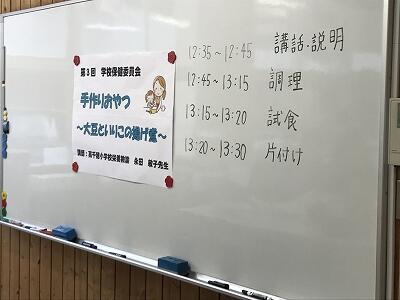 第3回 学校保健委員会
手作りおやつ
～大豆といりこの揚げ煮～
講師：高千穂小学校栄養教諭 永田 敏子先生
12:35 ～ 12:45 講話・説明
12:45 ～ 13:15 調理
13:15 ～ 13:20 試食
13:20 ～ 13:30 片付け